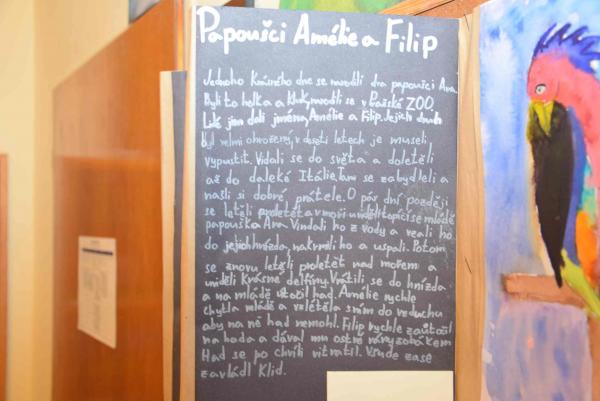 Papoušci Amélie a Filip
Jednoho krásného dne se narodili dva papoušci Ara.
Byli to holka a kluk, narodili se v Pražské ZOO.
Lidé jim dali jména, Amélie a Filip. Jejich druh
byl velmi ohrožený, v deseti letech je museli
vypustit. Vidali se do světa a doletěli
až do daleké Itálie. Tam se zabydleli a
našli si dobré přátele. O pár dní později
se letěli proletět a v moři uviděli topící se mládě
papouška Ara. Vindali ho z vody a vzali ho
do jejich hnízda, nakrmili ho a uspali. Potom
se znovu letěli proletět nad mořem a
uviděli krásné delfíny. Vrátili se do hnízda
a na mládě útočil had. Amélie rychle
chytla mládě a vzlétěla s ním do vzduchu
aby na ně had nemohl. Filip rychle zaútočil
na hada a dával mu ostré rány zobákem
Had se po chvíli vitratil. Všude zase
zavládl klid.